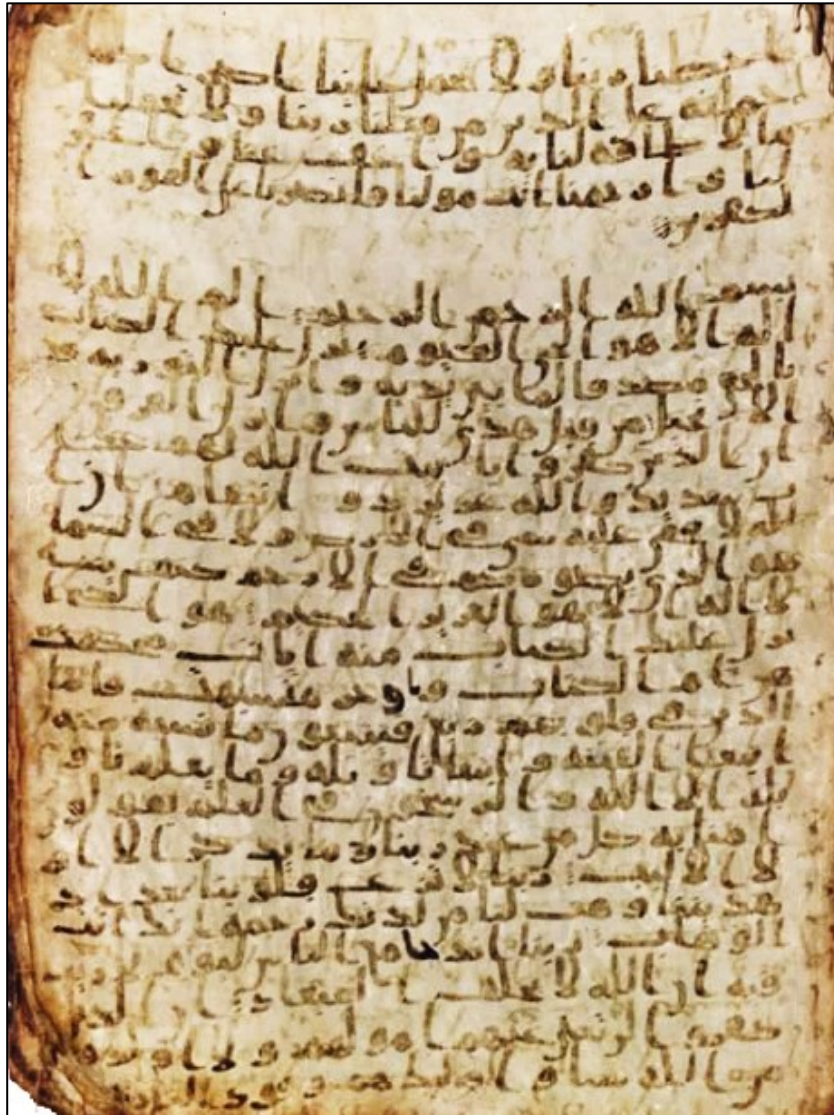 اخطانا ربنا ولا تحمل علينا اصرا كما
حملته على الذين من قبلنا ربنا ولا تحملنا
ما لا طاقه لنا به واعف عنا واغفر
لنا وارحمنا انت مولنا فانصرنا على القوم ا
لكفرين
بسم الله الرحمن الرحيم الم الله لا
اله الا هو الحي القيوم نزل عليك الكتاب
بالحق مصدقا لما بين يديه وانزل التوريه و
الانجيل من قبل هدى للناس وانزل الفرقن
ان الذين كفروا بايت الله لهم عذا
ب شديد والله عزيز ذو انتقام ان ا
لله لا يخفى عليه شي في الارض ولا في السما
هو الذي يصوركم في الارحم كيف يشا
لا اله الا هو العزيز الحكيم هو الذي ا
نزل عليك الكتاب منه ايات محكمت
هن ام الكتاب واخر متشبهت فاما
الذين في قلوبهم زيغ فيتبعون ما تشبه منه
ابتغا الفتنه وابتغا تاويله وما يعلم تاو
يله الا الله والرسخون في العلم يقولو
ن امنا به كل من عند ربنا وما يذكر الا ا
لوا الالبب ربنا لا تزغ قلوبنا بعد اذ
هديتنا وهب لنا من لدنك رحمه انك انت
الوهاب ربنا انك جامع الناس ليوم لا ريب
فيه ان الله لا يخلف الميعاد ان الذين
كفروا لن تغني عنهم امولهم ولا اولدهم
من الله شيا واوليك هم وقود النار